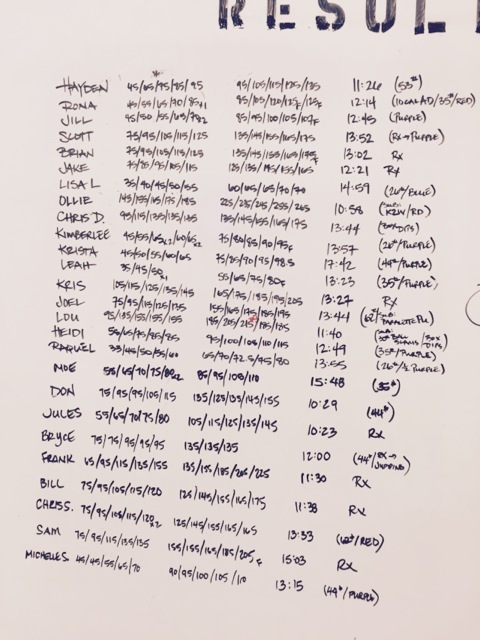 RESULT
HAYDEN 45/65/75/85/95 95/105/115/125/135 11:26 (53#)
RONA 45/55/65/70/85x1 95/105/120/125f/125f 12:14 (10CAL AD/35#/RED)
JILL 45/50/55/65/75x2 85/95/100/105/107f 12:45 (PURPLE)
SCOTT 75/95/105/115/125 135/145/155/165/175 13:52 (RX→PURPLE)
BRIAN 75/95/105/115/125 135/145/155/165/175f 13:02 RX
JAKE 75/85/95/105/115 125/135/145/155/165 12:21 RX
LISA L 35/40/45/50/55 60/65/65/70/70 14:59 (26#/BLUE)
OLLIE 145/155/165/175/185 225/235/245/255/265 10:58
CHRIS D. 95/115/135/135/135 135/145/155/165/175 13:44
KIMBERLEE 75/80/85/90/95f 13:57 (26#/PURPLE)
KRISTA 45/50/55/60/65 75/85/90/95/98.5 17:42 (44#/PURPLE)
LEAH 35/45/50x1 55/65/75/80f 13:23 (35#/PURPLE)
KRIS 105/115/125/135/145 165/175/185/195/205 13:27 RX
JOEL 75/95/115/125/135 155/165/175/185/195 13:44
LOU
HEIDI 55/65/75/85/85 95/100/105/110/115 11:40
RAQUEL 35/45/50/55/60 65/70/72.5/75/80 12:49 (35#/PURPLE)
MOE 55/65/70/75/80x2 85/95/105/110 13:55 (26#/PURPLE)
DON 75/95/95/105/115 135/125/135/145/155 15:48 (35#)
JULES 55/65/70/75/80 105/115/125/135/145 10:29 (44#)
BRYCE 75/75/95/95/95 135/135/135 10:23 RX
FRANK 65/95/115/135/155 135/155/185/205/225 12:00 (44#/RX→JUMPING)
BILL 75/95/105/115/120 125/145/155/165/175 11:30 RX
CHRIS S. 75/95/105/115/120x2 125/145/155/165/165 11:38 RX
SAM 75/95/115/135/135 155/155/165/185/205f 13:33 (62#/RED)
MICHELLE S. 45/45/55/65/70 90/95/100/105/110 15:03 RX
13:15 (44#/PURPLE)